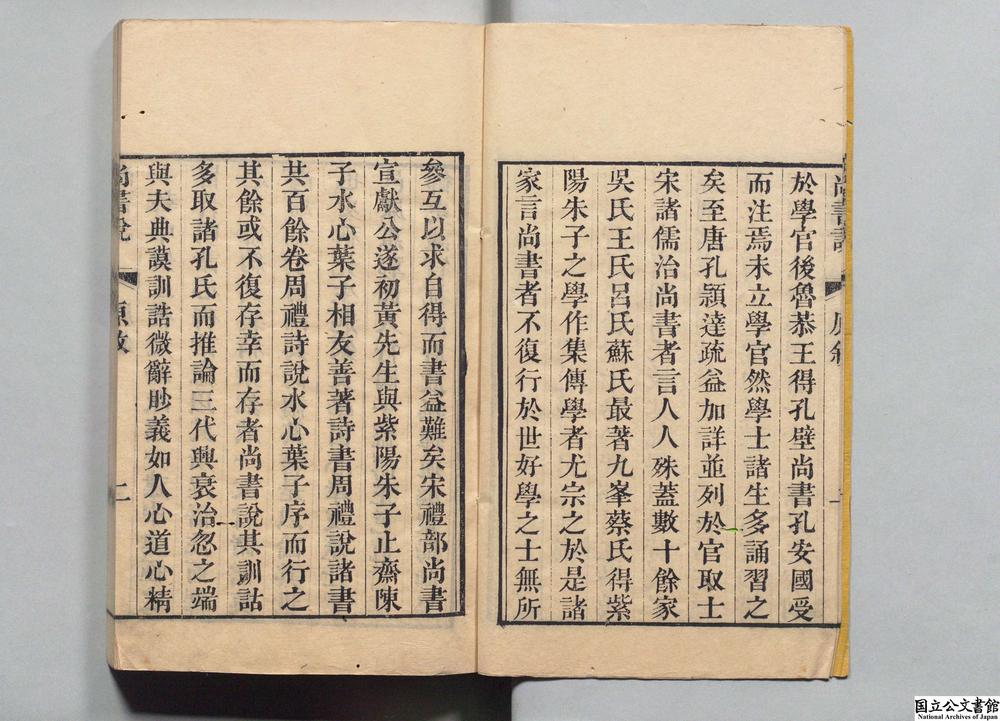 於學官後魯恭王得孔壁尚書孔安國受
而注焉未立學官然學士諸生多誦習之
矣至唐孔頴達疏益加詳並列於官取士
宋諸儒治尚書者言人人殊蓋數十餘家
吳氏王氏呂氏蘇氏最著九峯蔡氏得紫
陽朱子之學作集傳學者尤宗之於是諸
家言尚書者不復行於世好學之士無所
參互以求自得而書益難矣宋禮部尚書
宣獻公遂初黃先生與紫陽朱子止齋陳
子水心葉子相友善著詩書周禮說諸書
共百餘卷周禮詩說水心葉子序而行之
其餘或不復存幸而存者尚書說其訓詁
多取諸孔氏而推論三代興衰治忽之端
與夫典謨訓誥微辭眇義如人心道心精
尚書說
二
国立公文書館
National Archives of Japan